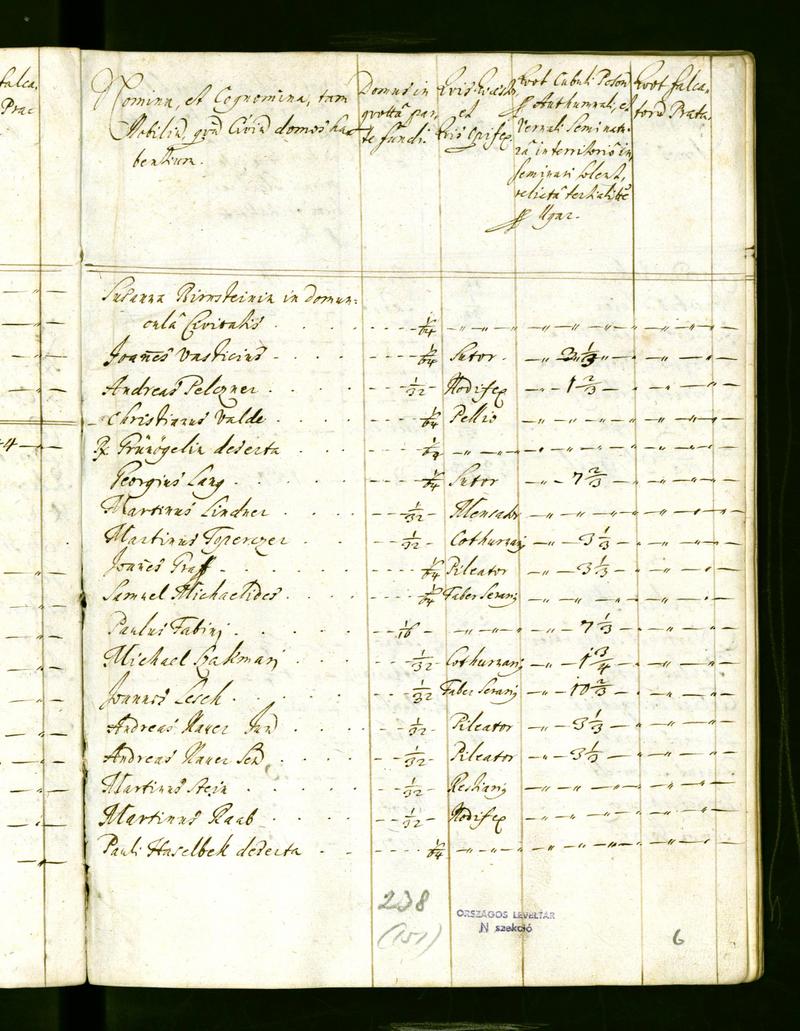 falca
Prat
Nomina, et Cognomina, tam
Nobiliũ, qm̃ Civiũ domos ha-
bentium.
Domus in
quotta par,
te fundi.
Eris
et
Eris Opifex
Quot Cubuli Poson
Authumnali, et
Vernali Seminatu-
râ in territorio in
seminari solent,
relictâ tertialitẽ
Ugar.
Quot falca,
torũ Prata.
Susanna Birnsteinin in domun=
culâ Civitatis 1/64
Joañes Vasticius 1/64 Sutor 3 1/3
Andreas Pelczner 1/32 Nodifex 1 2/3
Christianus Valde 1/64 Pellio
Grünögelin deserta 1/64
Georgius Lang 1/64 Sutor 7 2/3
Martinus Lindner 1/32 Mensator
Martinus 1/32 Cothurnarij 3 1/3
Joañes Graff 1/64 Pileator 3 1/3
Samuel Michaelides 1/64 Faber Serarij
Paulus Fabinj 1/16 7 1/3
Michael Czakmarj 1/32 Cothurnarij 1 3/4
Joannes Lesch 1/32 Faber Serarij 10 2/3
Andreas Mauer Jun 1/32 Pileator 3 1/3
Andreas Mauer Sen 1/32 Pileator 3 1/3
Martinus Stein 1/32 Restiarij
Martinus Raab 1/32 Nodifex
Pauli Haselbek deserta 1/64
238
(151)
ORSZÁGOS LEVÉLTÁR
N szekció
6